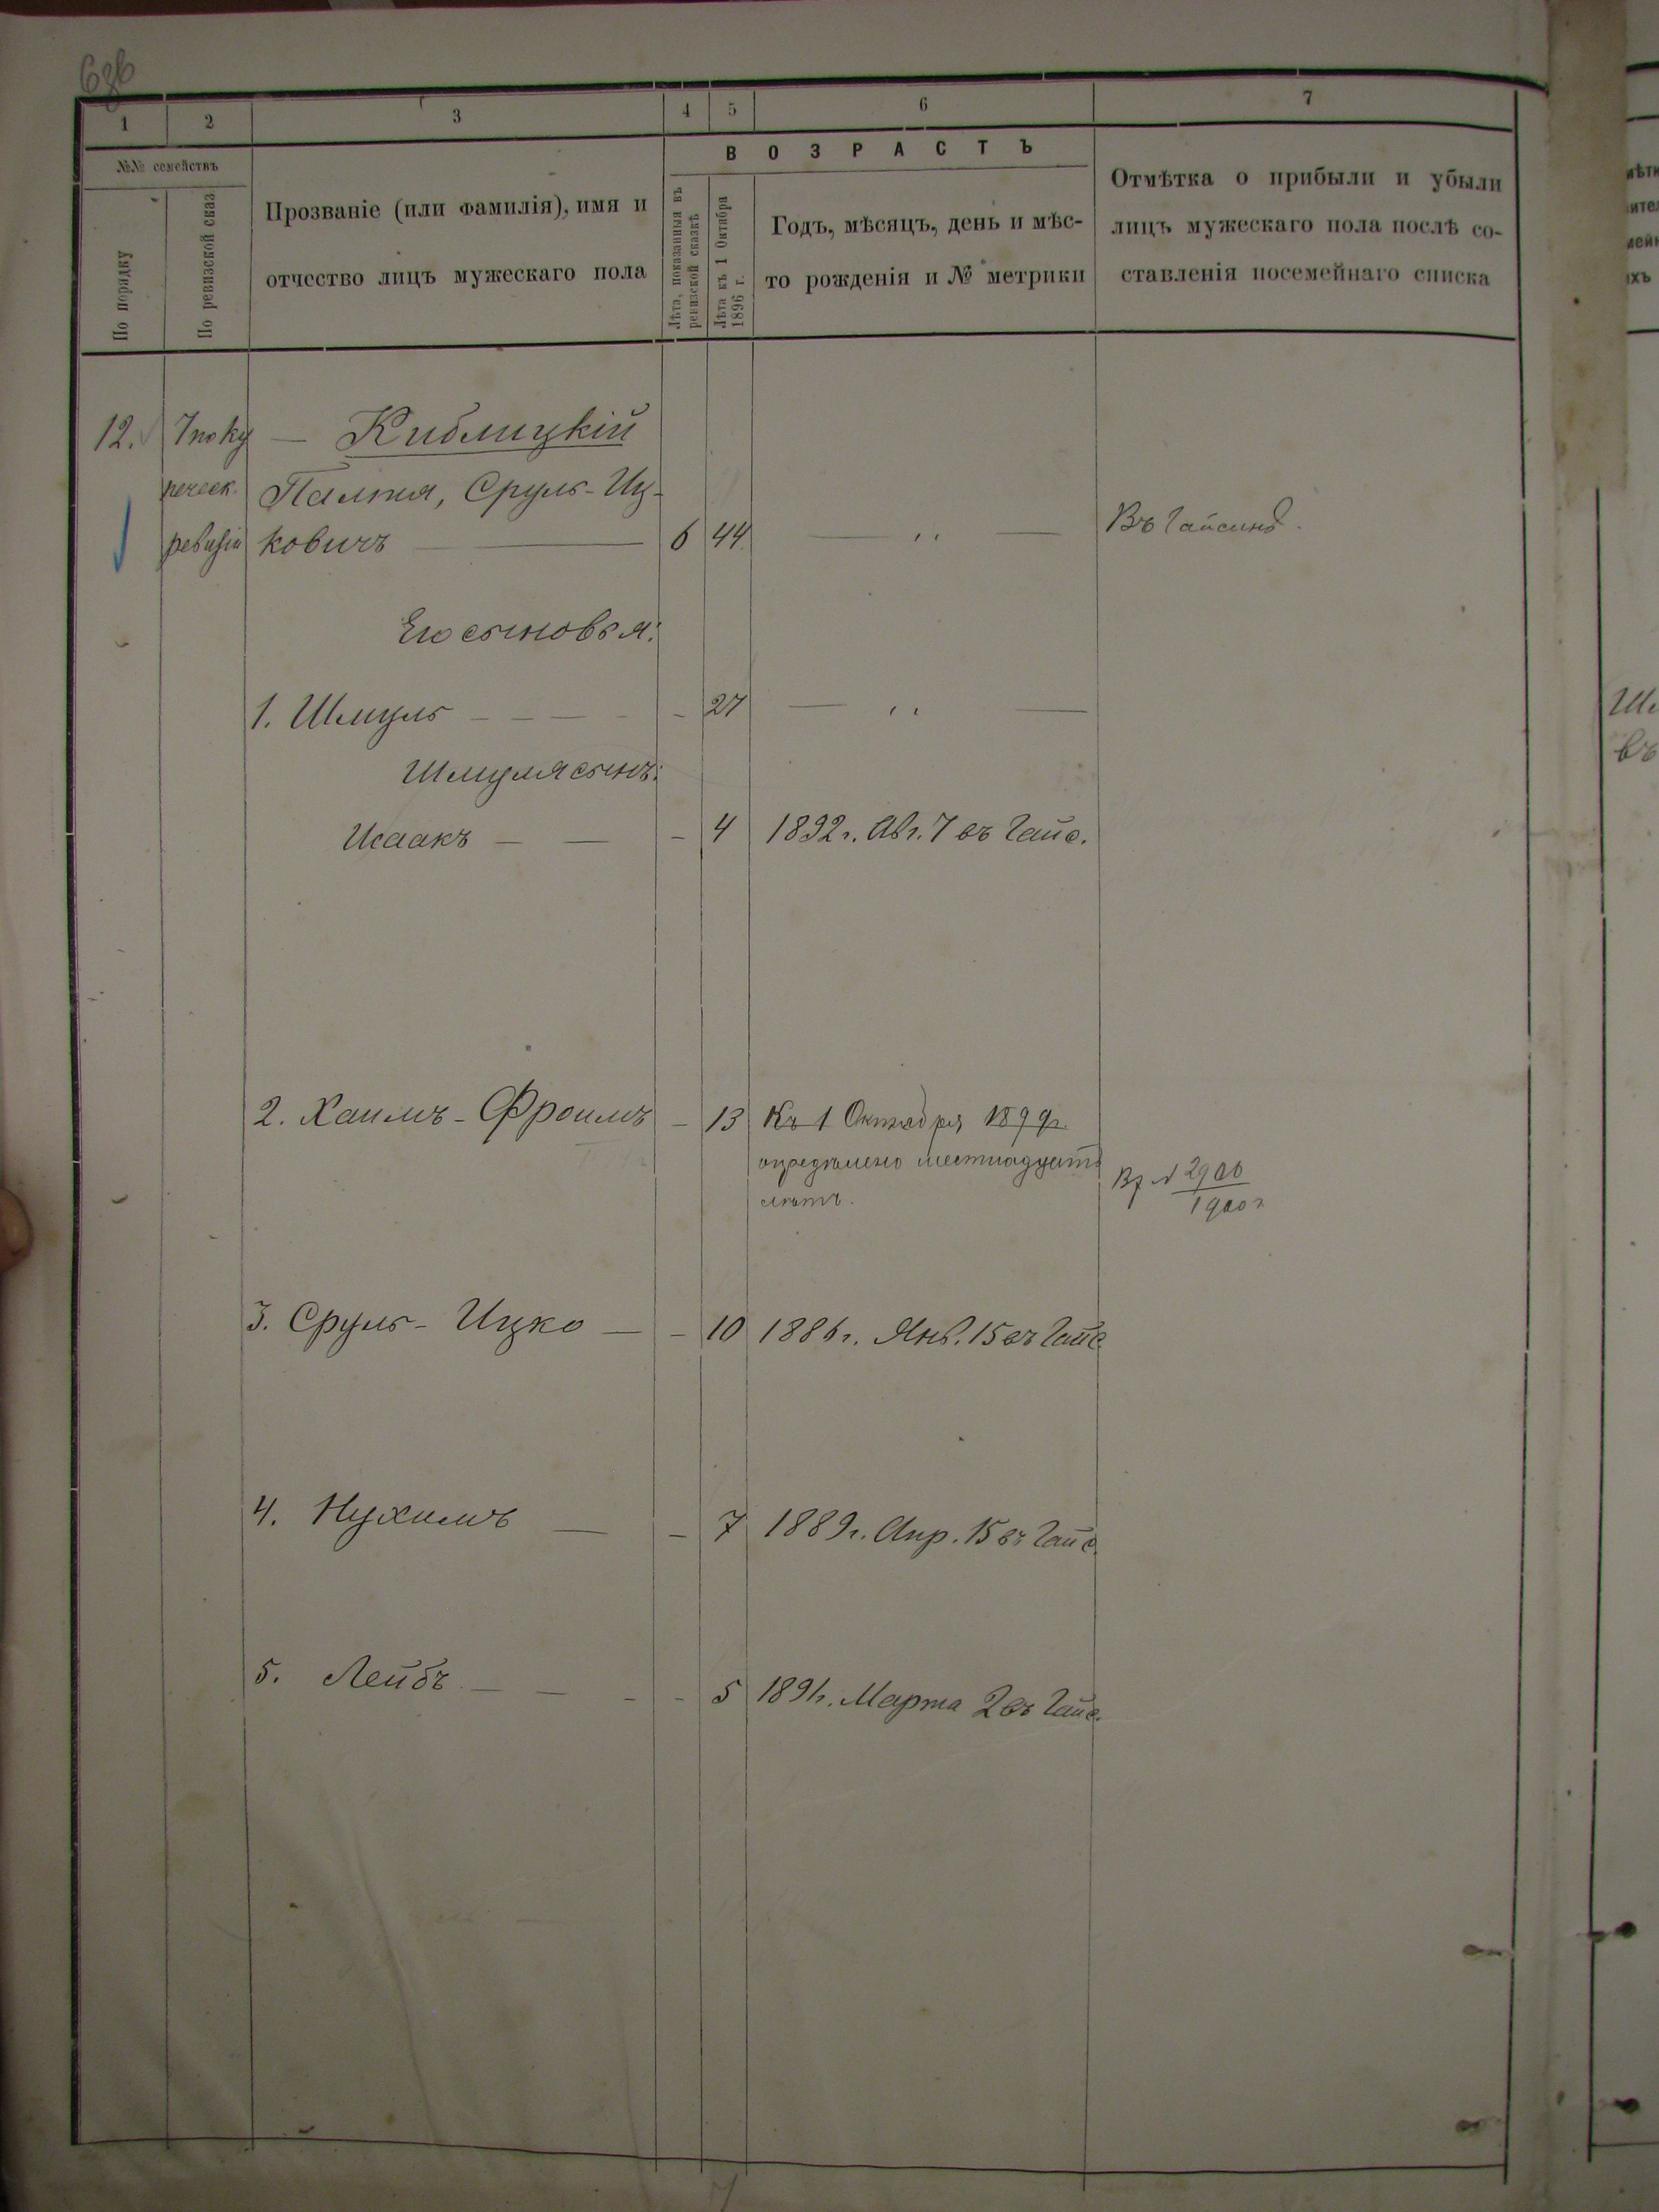 1 2 3 4 5 6 7
№№ семействъ
По порядку
По ревизской сказ
Прозваніе (или фамилія), имя и
отчество лицъ мужескаго пола
ВОЗРАСТЪ
Лѣта, показанныя въ
ревизской сказкѣ
Лѣта къ 1 Октября
1896 г.
Годъ, мѣсяцъ, день и мѣс-
то рожденія и № метрики
Отмѣтка о прибыли и убыли
лицъ мужескаго пола послѣ со-
ставленія посемейнаго списка
12. 7 по ку — Киблицкій
печеск. Палтя, Сруль-Иц-
ревизіи ковичъ — 6 44 — „ — Въ Гайсинѣ.
Его сыновья:
1. Шмуль - - - - 27 — „ —
Шмуля сынъ:
Исаакъ — — - 4 1892 г. Авг. 7 въ Гайс.
2. Хаимъ-Фроимъ - 13 Къ 1 Октября 1899 г.
опредѣлено шестнадцать
лѣтъ.
№ 2900
1900 г
3. Сруль-Ицко — - 10 1886 г. Янв. 15 въ Гайс.
4. Нухимъ — - 7 1889 г. Апр. 15 въ Гайс.
5. Лейбъ — — - - 5 1891 г. Марта 2 въ Гайс.